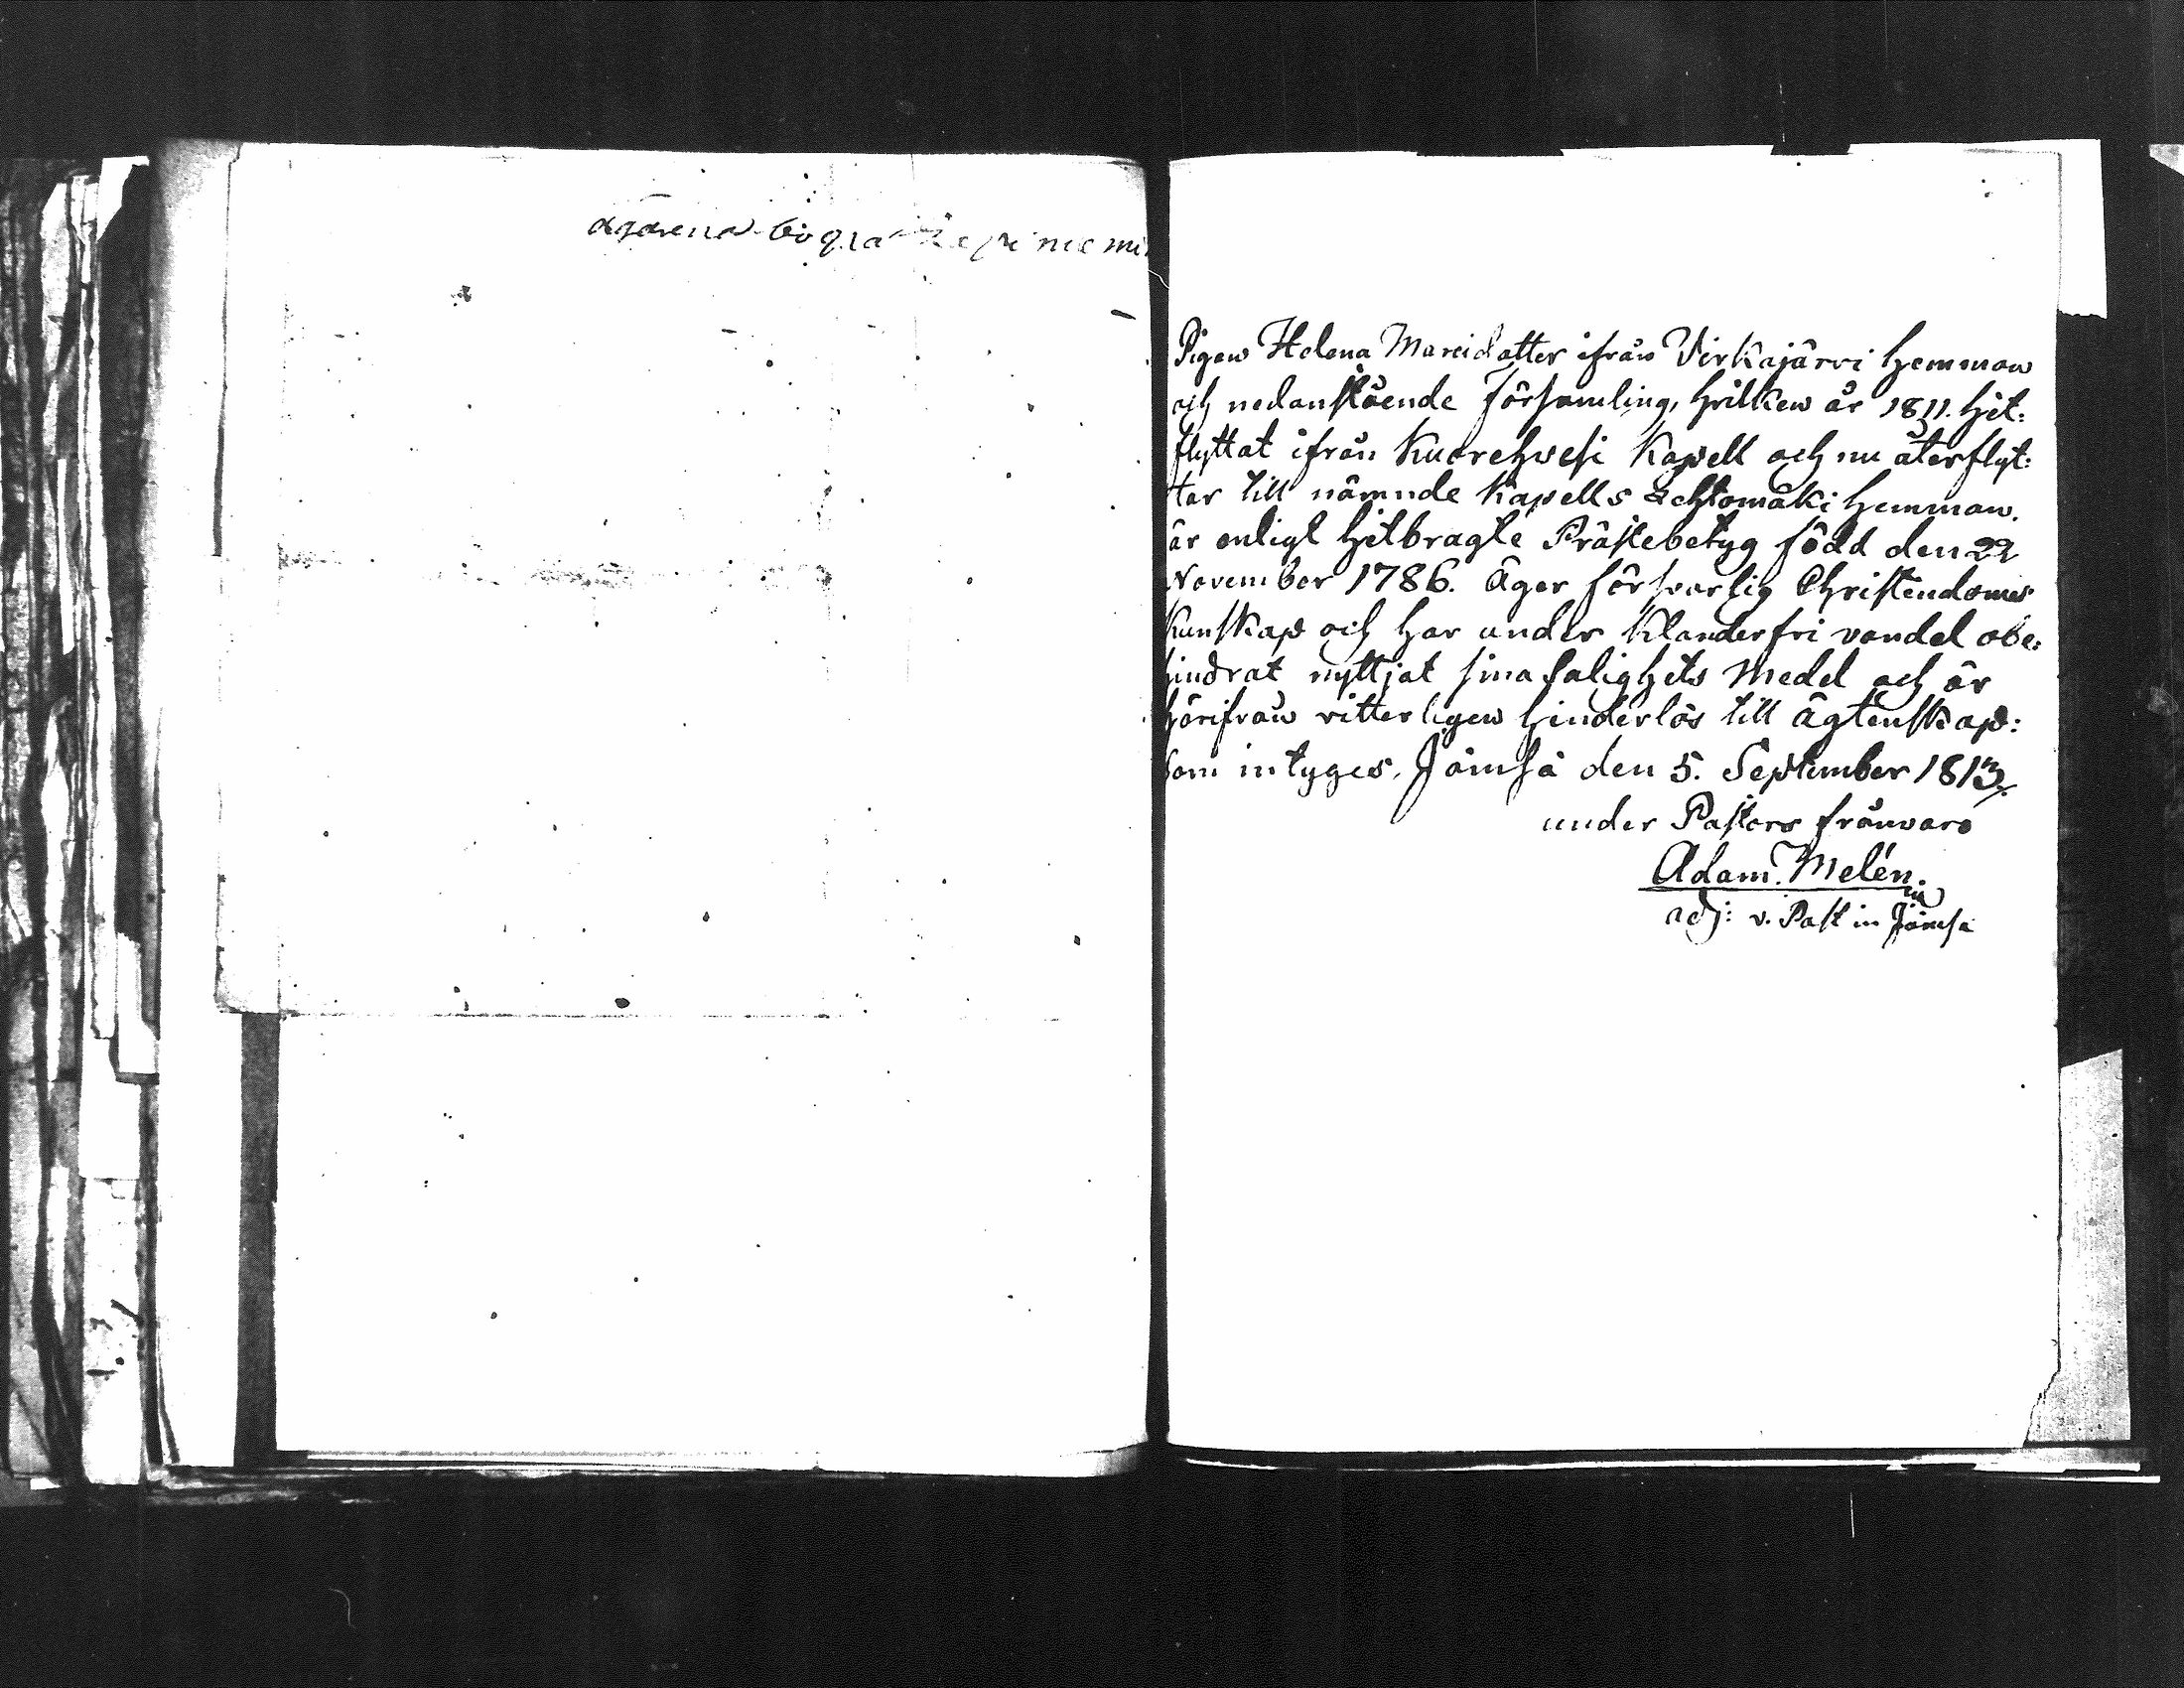 Pigan Helena Marcidatter ifrån Virkajärvi hemman
och nedanstående Församling, hvilken år 1811. hit:
flyttat ifrån Kuorehvesi Kapell och nu återflyt:
tar till nämnde Kapells Lehtomäki hemman.
är enligt hitbragte Prästebetyg född den 22
November 1786. Äger försvarlig Christendoms
kunskap och har under klanderfri vandel obe:
hindrat nyttjat sina salighets Medel och är
härifrån vitterligen hinderlös till Ägtenskap:
som intyges. Jämsä den 5. September 1813.
under Pastors frånvaro
Adam. Melén.
adj: v. Past in Jämsä